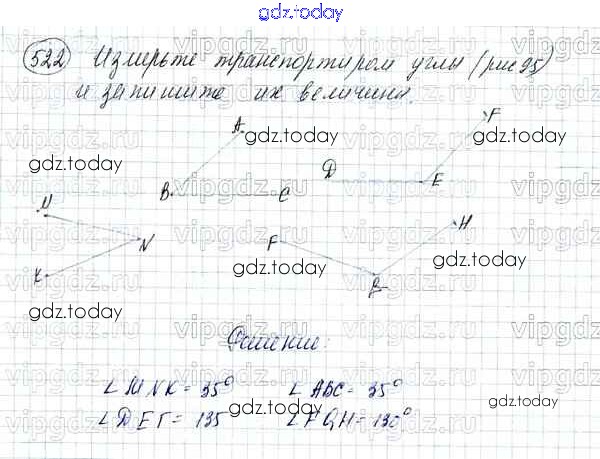 gdz.today
522 Измерьте транспортиром углы (рис 95)
и запишите их величины.
A
F
gdz.today
gdz.today
gdz.today
D
E
B
C
M
H
N
F
K
gdz.today
gdz.today
gdz.today
Решение:
∠MNK = 35° ∠ABC = 35°
∠DEF = 135 gdz.today ∠FQH = 130°